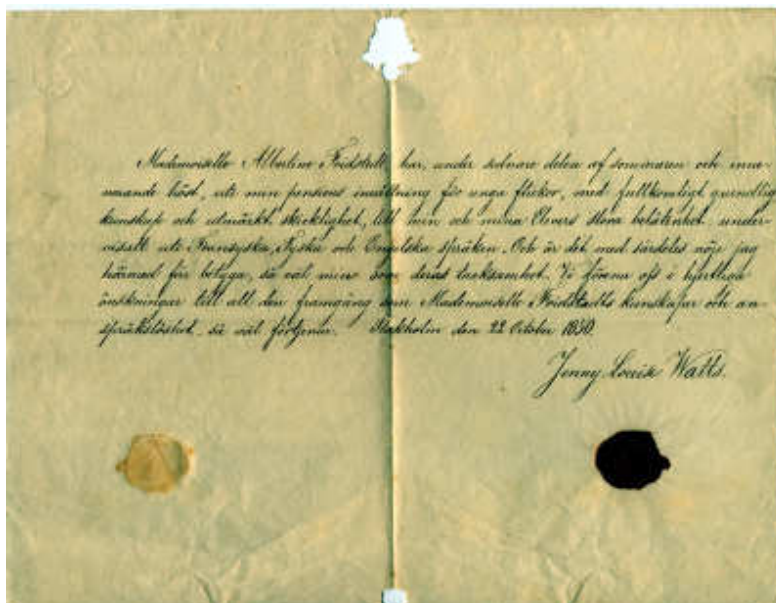 Mademoiselle Albertine Fridstedt har, under sednare delen af sommaren och inne-
warande höst, uti min pensions inrättning för unga flickor, med fullkomligt grundlig
kunskap och utmärkt skicklighet, till min och mina Elevers stora belåtenhet under-
visatt uti Fransyska, Tyska och Engelska språken. Och är det med särdeles nöje jag
härmed får betyga, så väl min som deras tacksamhet. Vi förena oss i hjertliga
önskningar till all den framgång som Mademoiselle Fridstedts kunskaper och an-
språkslöshet så väl förtjena. Stockholm den 22 October 1850.
Jenny Louise Watts.